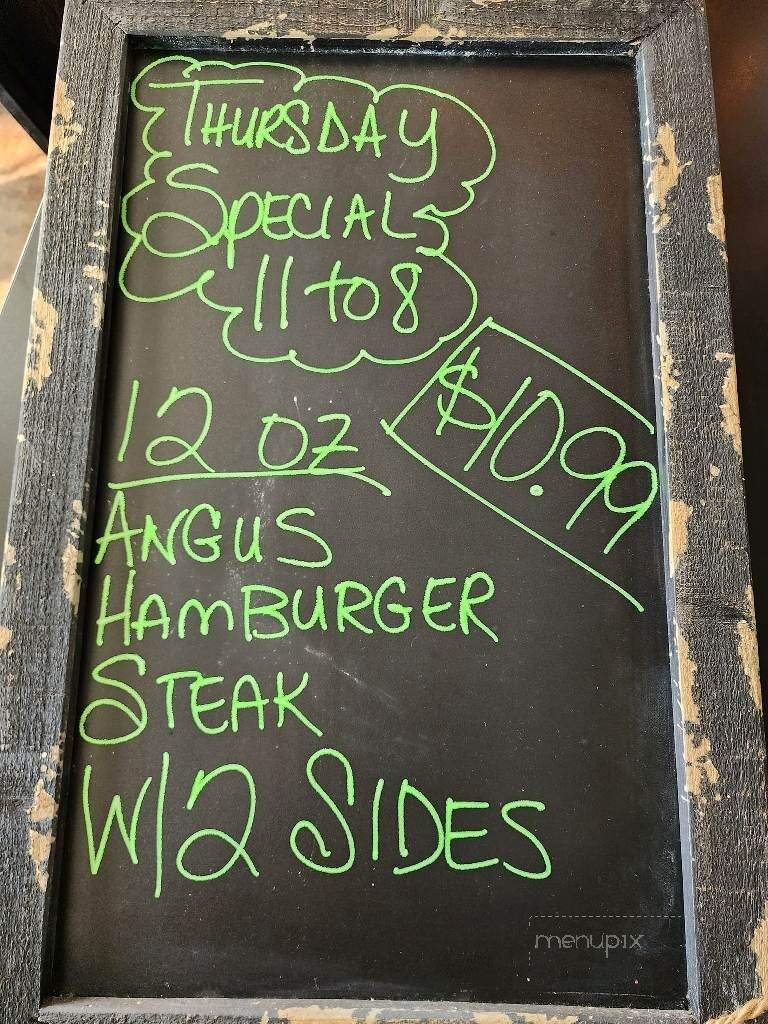 THURSDAY
SPECIAL
11 to 8
$10.99
12 OZ
ANGUS
HAMBURGER
STEAK
W/2 SIDES
menupix